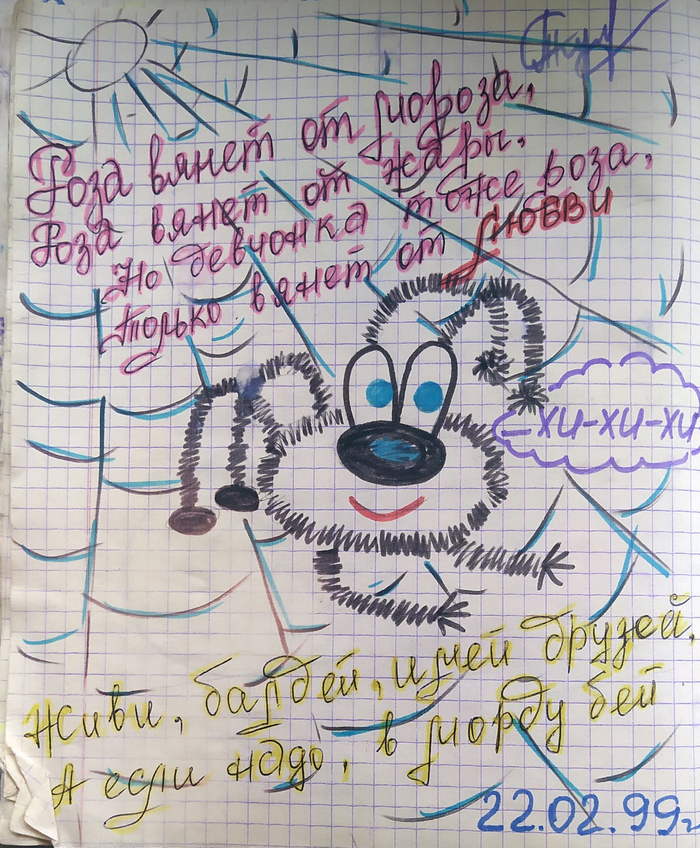 Роза вянет от мороза,
Роза вянет от жары.
Но девчонка тоже роза,
только вянет от ЛЮБВИ
– ХИ-ХИ-ХИ
Живи, балдей, имей друзей,
А если надо, в морду бей
22.02.99г